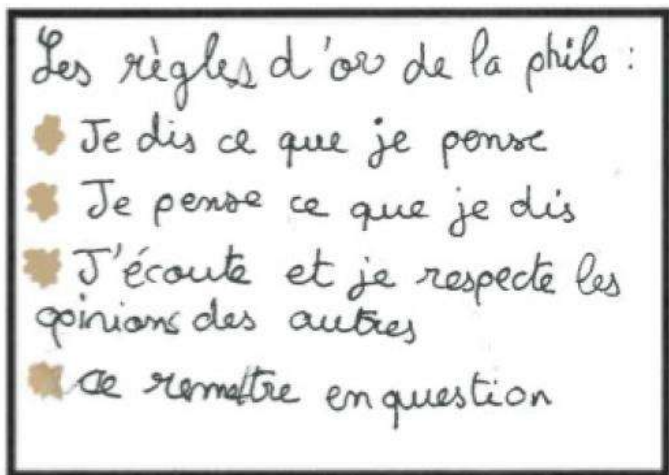 Les règles d'or de la philo :
Je dis ce que je pense
Je pense ce que je dis
J'écoute et je respecte les
opinions des autres
ce remettre en question